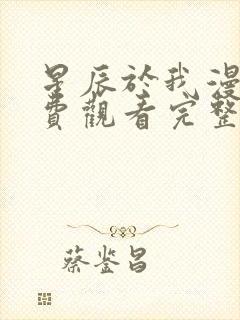 星辰於我漫
費觀看完整
蔡鉴昌